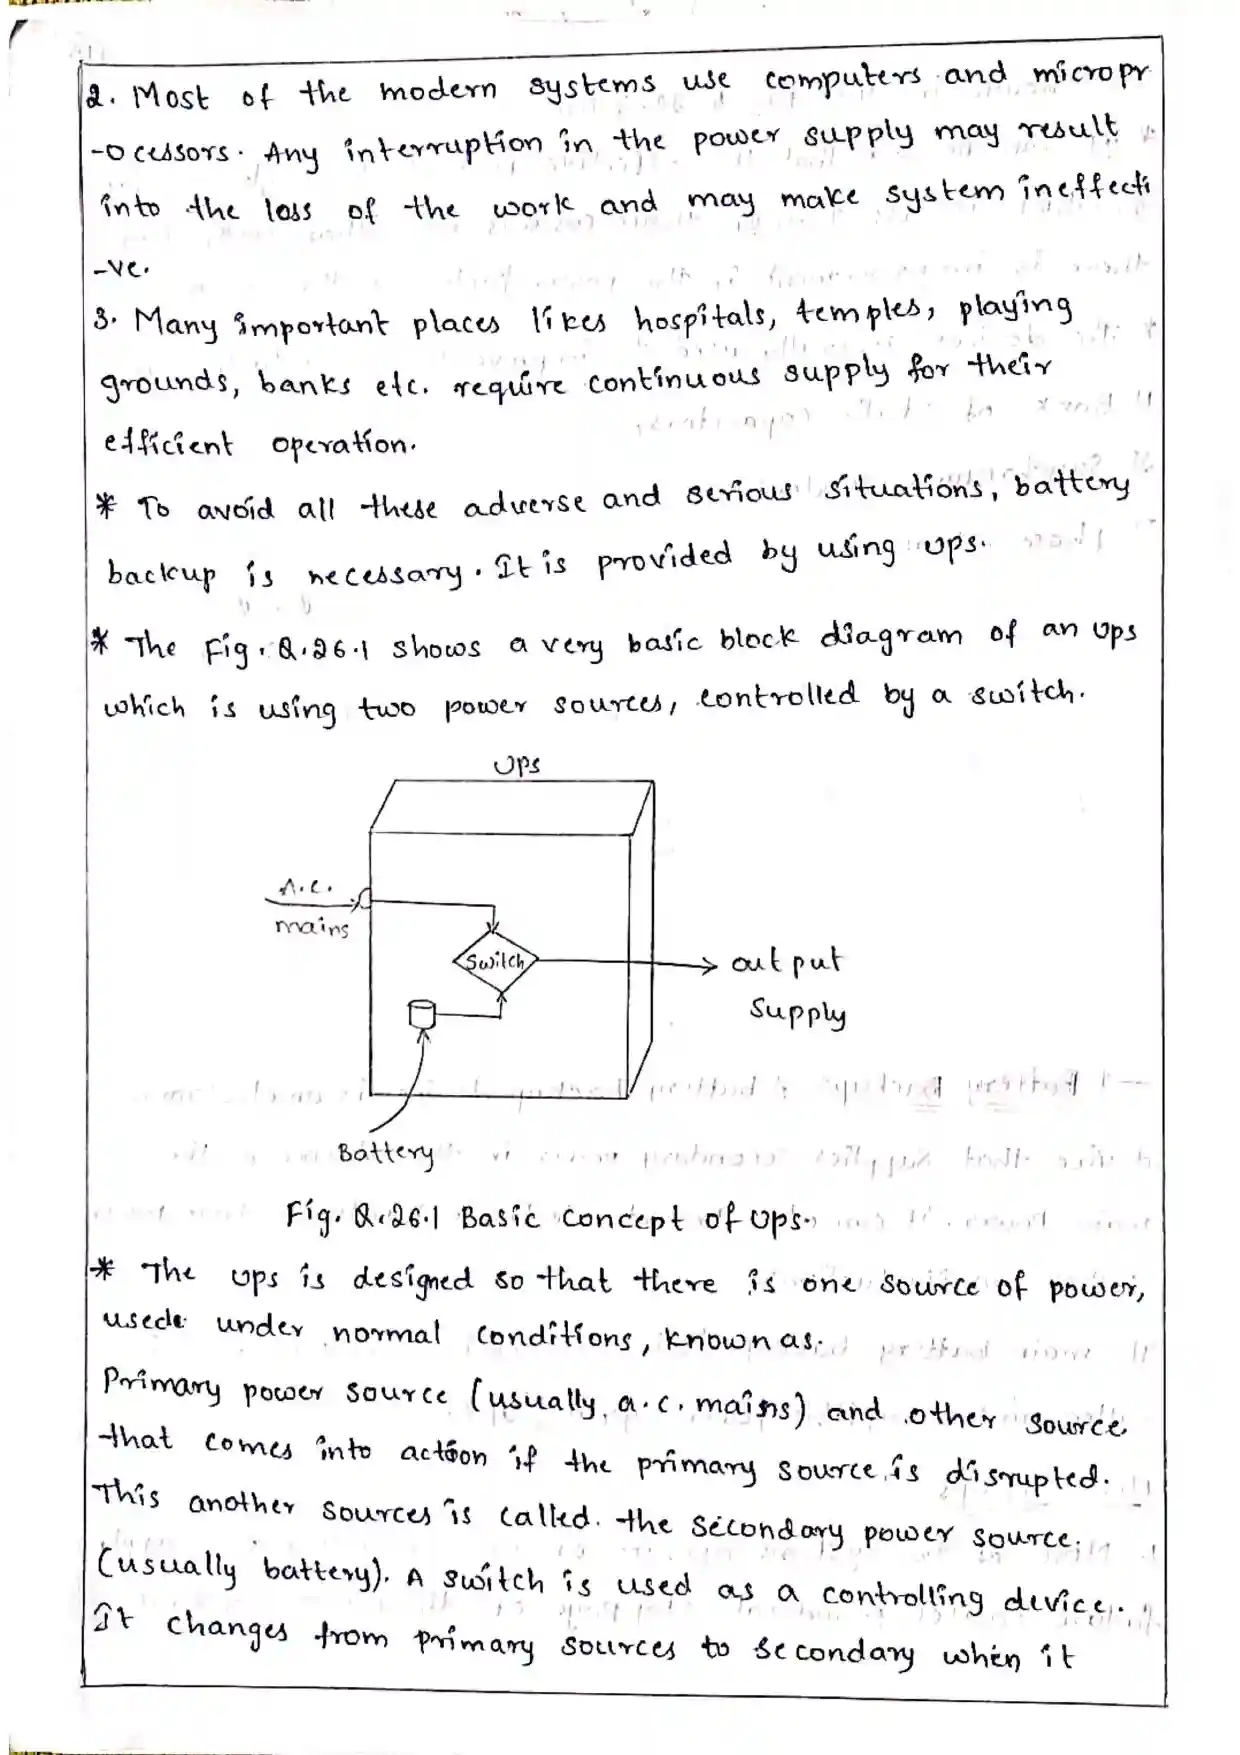 2. Most of the modern systems use computers and micropr
-ocessors. Any interruption in the power supply may result
into the loss of the work and may make system ineffecti
-ve.
3. Many important places likes hospitals, temples, playing
grounds, banks etc. require continuous supply for their
efficient operation.
* To avoid all these adverse and serious situations, battery
backup is necessary. It is provided by using ups.
* The Fig. Q.26.1 shows a very basic block diagram of an ups
which is using two power sources, controlled by a switch.
Ups
A.C.
mains
Switch
output
Supply
Battery
Fig. Q.26.1 Basic Concept of ups.
* The ups is designed so that there is one source of power,
usede under normal conditions, known as.
Primary power source (usually a.c. mains) and other source
that comes into action if the primary source is disrupted.
This another sources is called. the secondary power source.
(usually battery). A switch is used as a controlling device.
It changes from primary sources to secondary when it